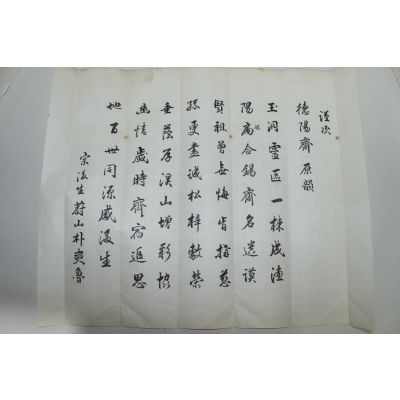 謹次
德陽齋原韻
玉洞靈區一棟成德
陽高合錫齋名遺謨
賢祖曾無悔肯構慈
孫更盡誠松梓敷榮
垂蔭厚溪山增彩
幽情歲時齊宿追思
地百世同源感後生
宗後生蔚山朴奭魯